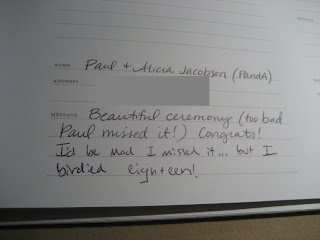 NAME Paul + Alicia Jacobson (PandA)
ADDRESS
MESSAGE Beautiful ceremony (too bad
Paul missed it!) Congrats!
I'd be mad I missed it... but I
birdied eighteen!